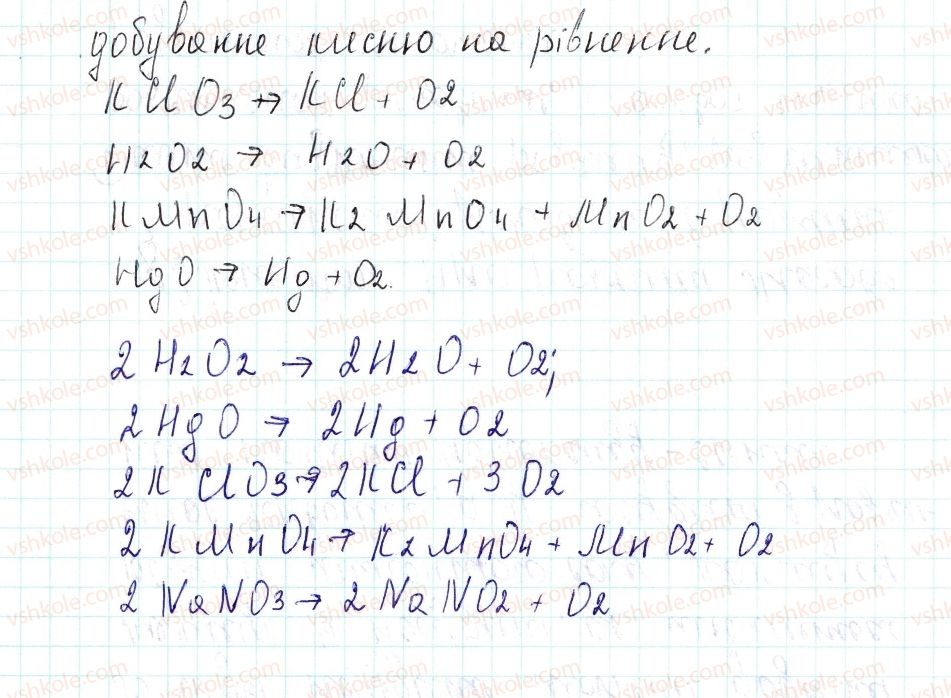 добування кисню на рівнення.
KClO3 → KCl + O2
H2O2 → H2O + O2
KMnO4 → K2MnO4 + MnO2 + O2
HgO → Hg + O2.
2H2O2 → 2H2O + O2;
2HgO → 2Hg + O2
2KClO3 → 2KCl + 3O2
2KMnO4 → K2MnO4 + MnO2 + O2
2NaNO3 → 2NaNO2 + O2